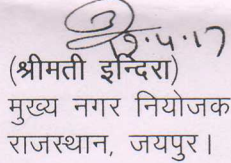 (श्रीमती इन्दिरा)
मुख्य नगर नियोजक
राजस्थान, जयपुर।